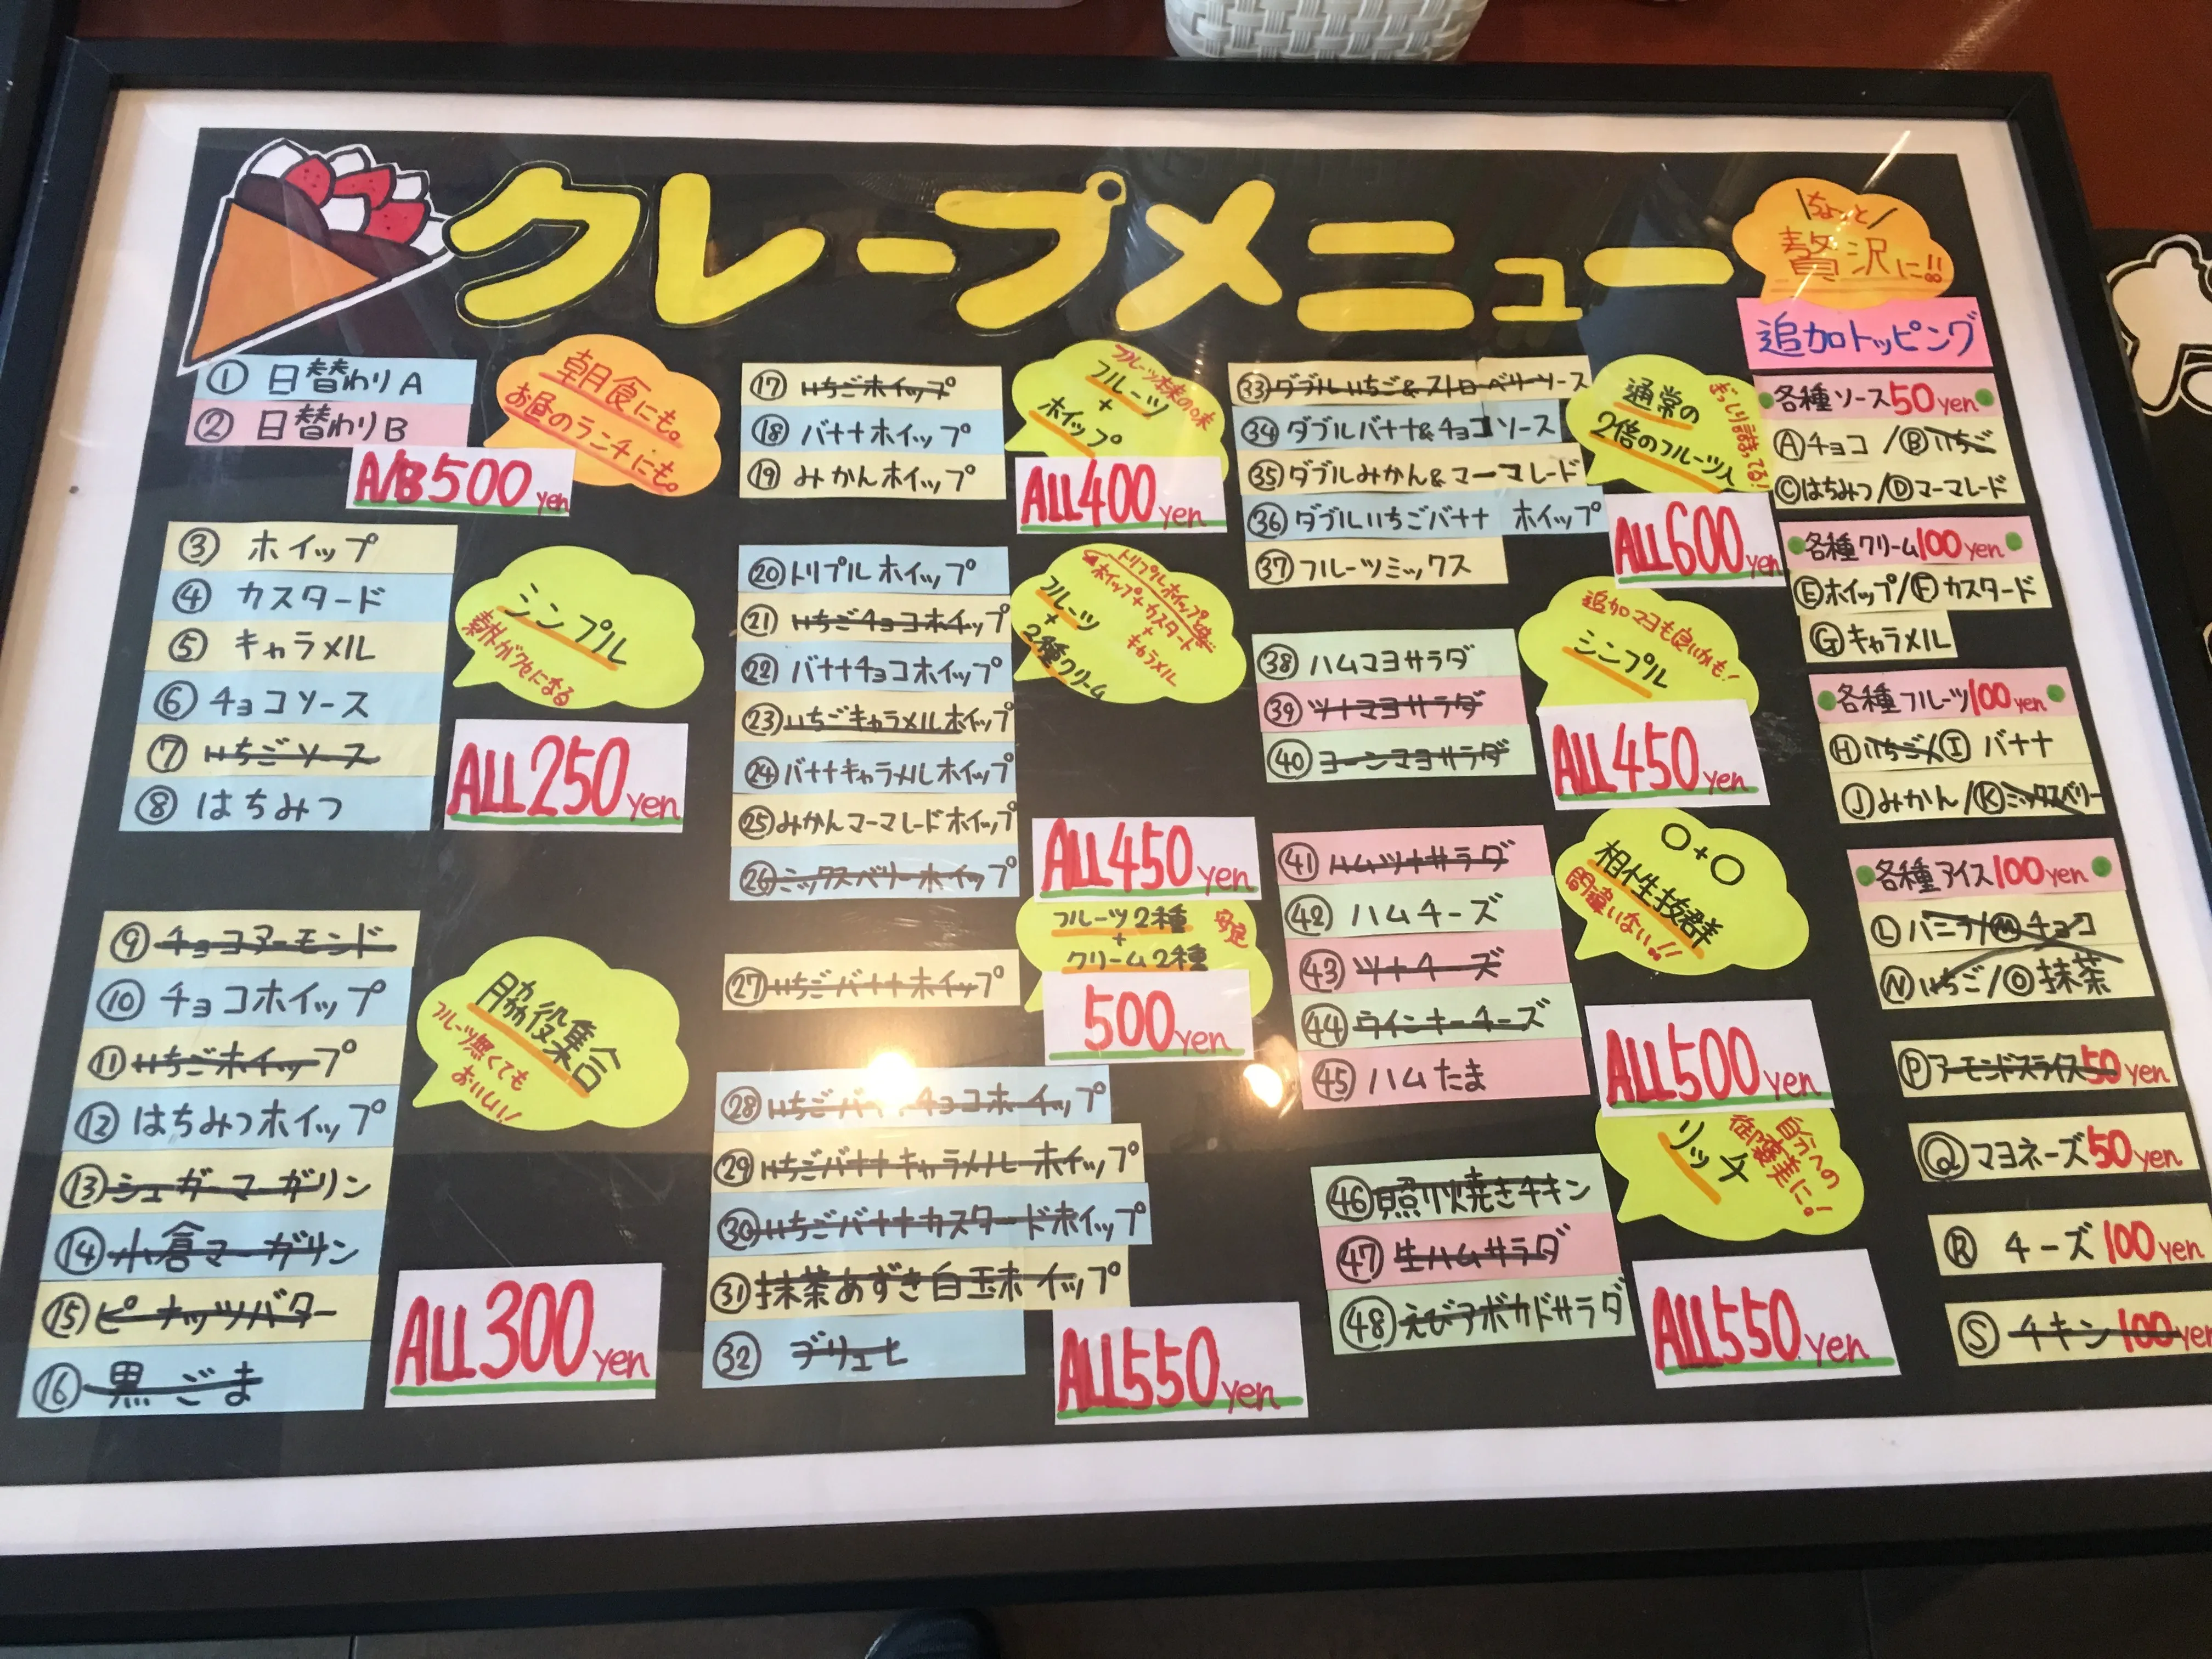 クレープメニュー
① 日替わりA
② 日替わりB
A/B500yen
朝食にも。
お昼のランチにも。
③ ホイップ
④ カスタード
⑤ キャラメル
⑥ チョコソース
⑦ いちごソース
⑧ はちみつ
シンプル
素朴がクセになる
ALL250yen
⑨ チョコアーモンド
⑩ チョコホイップ
⑪ いちごホイップ
⑫ はちみつホイップ
⑬ シュガーマーガリン
⑭ 小倉マーガリン
⑮ ピーナッツバター
⑯ 黒ごま
脇役集合
フルーツ無くても
おいしい!
ALL300yen
⑰ いちごホイップ
⑱ バナナホイップ
⑲ みかんホイップ
フルーツ本来の味
フルーツ
+
ホイップ
ALL400yen
⑳ トリプルホイップ
㉑ いちごチョコホイップ
㉒ バナナチョコホイップ
㉓ いちごキャラメルホイップ
㉔ バナナキャラメルホイップ
㉕ みかんマーマレードホイップ
㉖ ミックスベリーホイップ
トリプルホイップ
ホイップ+カスタード
+
キャラメル
フルーツ
+
2種クリーム
ALL450yen
㉗ いちごバナナホイップ
フルーツ2種
+
クリーム2種
500yen
㉘ いちごバナナチョコホイップ
㉙ いちごバナナキャラメルホイップ
㉚ いちごバナナカスタードホイップ
㉛ 抹茶あずき白玉ホイップ
㉜ ブリュレ
ALL550yen
㉝ ダブルいちご&ストロベリーソース
㉞ ダブルバナナ&チョコソース
㉟ ダブルみかん&マーマレード
㊱ ダブルいちごバナナ ホイップ
㊲ フルーツミックス
通常の
2倍のフルーツ入
ぎっしり詰まってる!
ALL600yen
㊳ ハムマヨサラダ
㊴ ツナマヨサラダ
㊵ コーンマヨサラダ
追加マヨも良いかも!
シンプル
ALL450yen
㊶ ハムツナサラダ
㊷ ハムチーズ
㊸ ツナチーズ
㊹ ウインナーチーズ
㊺ ハムたま
○+○
相性抜群
間違いない!!
ALL500yen
㊻ 照り焼きチキン
㊼ 生ハムサラダ
㊽ えびアボカドサラダ
リッチ
自分への
御褒美に!
ALL550yen
\ちょっと/
贅沢に!!
追加トッピング
各種ソース50yen
Ⓐチョコ/Ⓑいちご
Ⓒはちみつ/Ⓓマーマレード
各種クリーム100yen
Ⓔホイップ/Ⓕカスタード
Ⓖキャラメル
各種フルーツ100yen
Ⓗいちご/Ⓘ バナナ
Ⓙみかん/Ⓚミックスベリー
各種アイス100yen
Ⓛバニラ/Ⓜチョコ
Ⓝいちご/Ⓞ抹茶
Ⓟアーモンドスライス50yen
Ⓠマヨネーズ50yen
Ⓡ チーズ100yen
Ⓢ チキン100yen